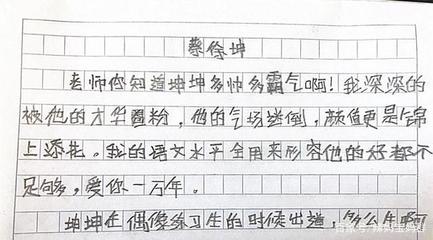 蔡徐坤
老师你知道坤坤多帅多霸气啊！我深深的
被他的才华圈粉，他的气场迷倒，颜值更是锦
上添花。我的语文水平全用来形容他的好都不
足够，爱你一万年。
坤坤在偶像练习生的时候出道，多么年啊
百家号/辣妈宝妈好